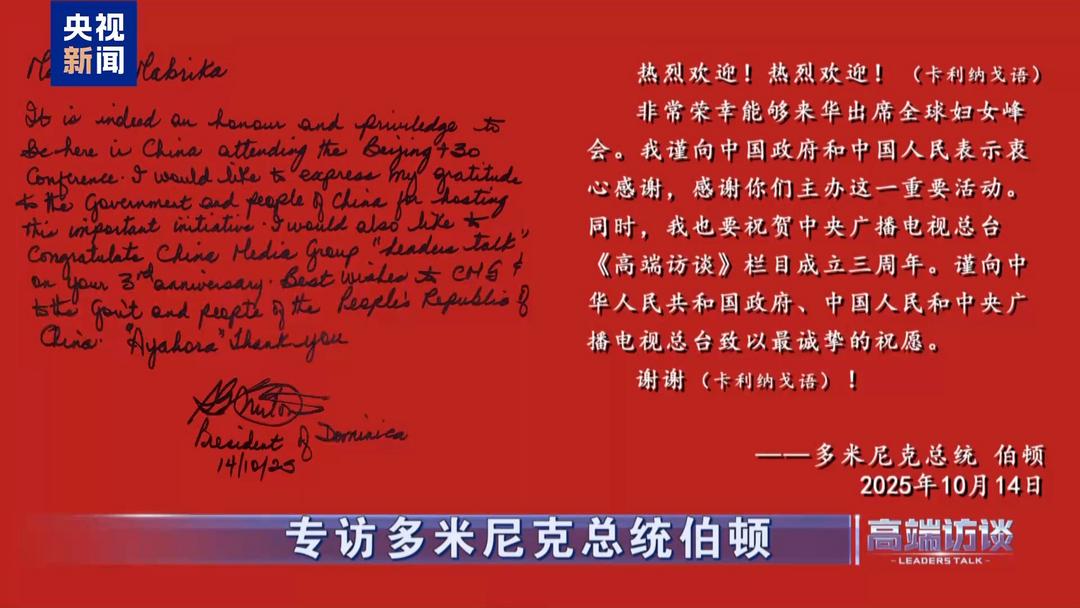 央视
新闻
Mabrika
It is indeed an honour and priviledge to
be here in China attending the Beijing +30
Conference. I would like to express my gratitude
to the Government and people of China for hosting
this important initiative. I would also like to
Congratulate China Media Group "Leaders Talk"
on your 3rd anniversary. Best wishes to CMG &
to the Gov't and people of the People's Republic of
China. "Ayahora" Thank you
President of Dominica
14/10/25
热烈欢迎！热烈欢迎！（卡利纳戈语）
非常荣幸能够来华出席全球妇女峰
会。我谨向中国政府和中国人民表示衷
心感谢，感谢你们主办这一重要活动。
同时，我也要祝贺中央广播电视总台
《高端访谈》栏目成立三周年。谨向中
华人民共和国政府、中国人民和中央广
播电视总台致以最诚挚的祝愿。
谢谢（卡利纳戈语）！
——多米尼克总统 伯顿
2025年10月14日
专访多米尼克总统伯顿
高端访谈
LEADERS TALK